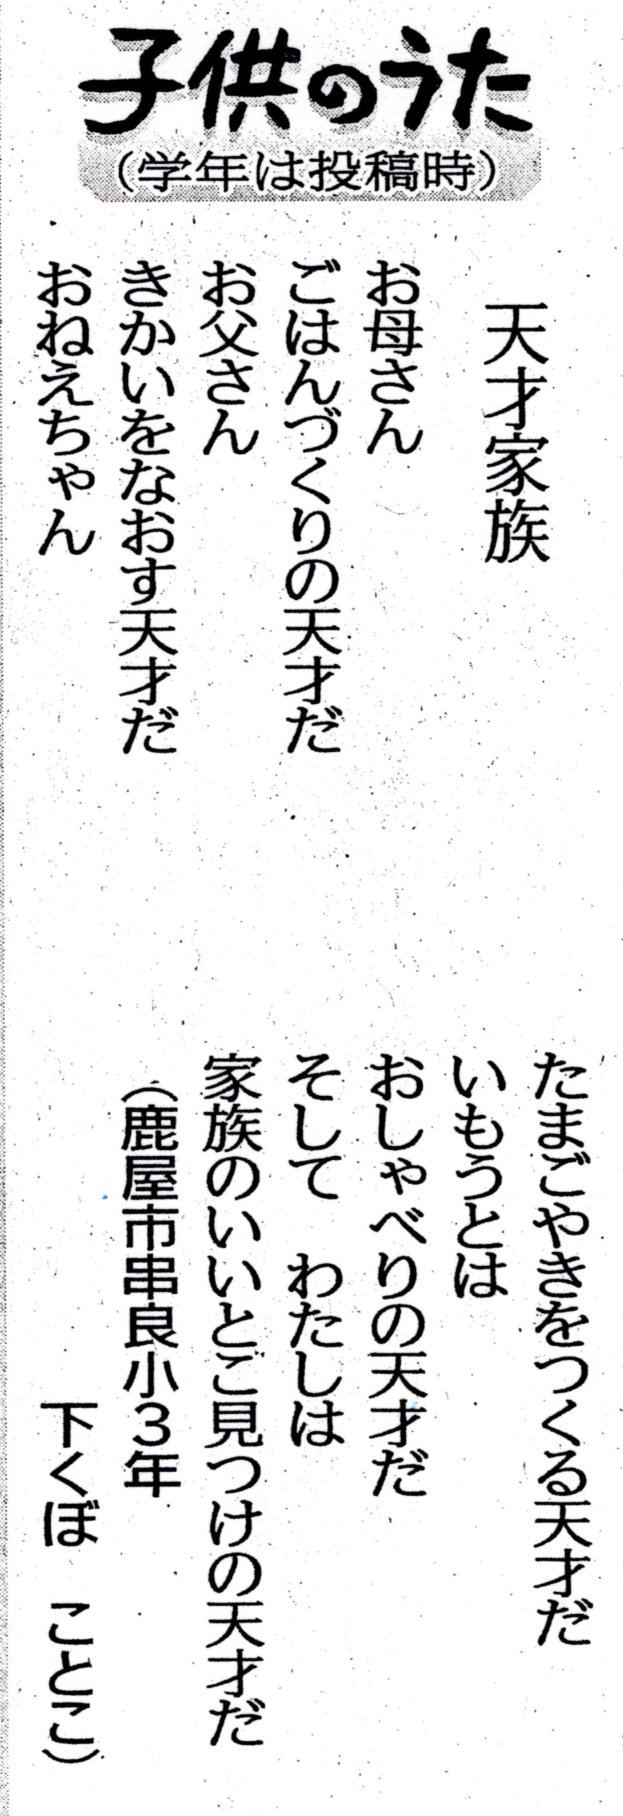 子供のうた
（学年は投稿時）
天才家族
お母さん
ごはんづくりの天才だ
お父さん
きかいをなおす天才だ
おねえちゃん
たまごやきをつくる天才だ
いもうとは
おしゃべりの天才だ
そして　わたしは
家族のいいとこ見つけの天才だ
（鹿屋市串良小３年
下くぼ　ことこ）